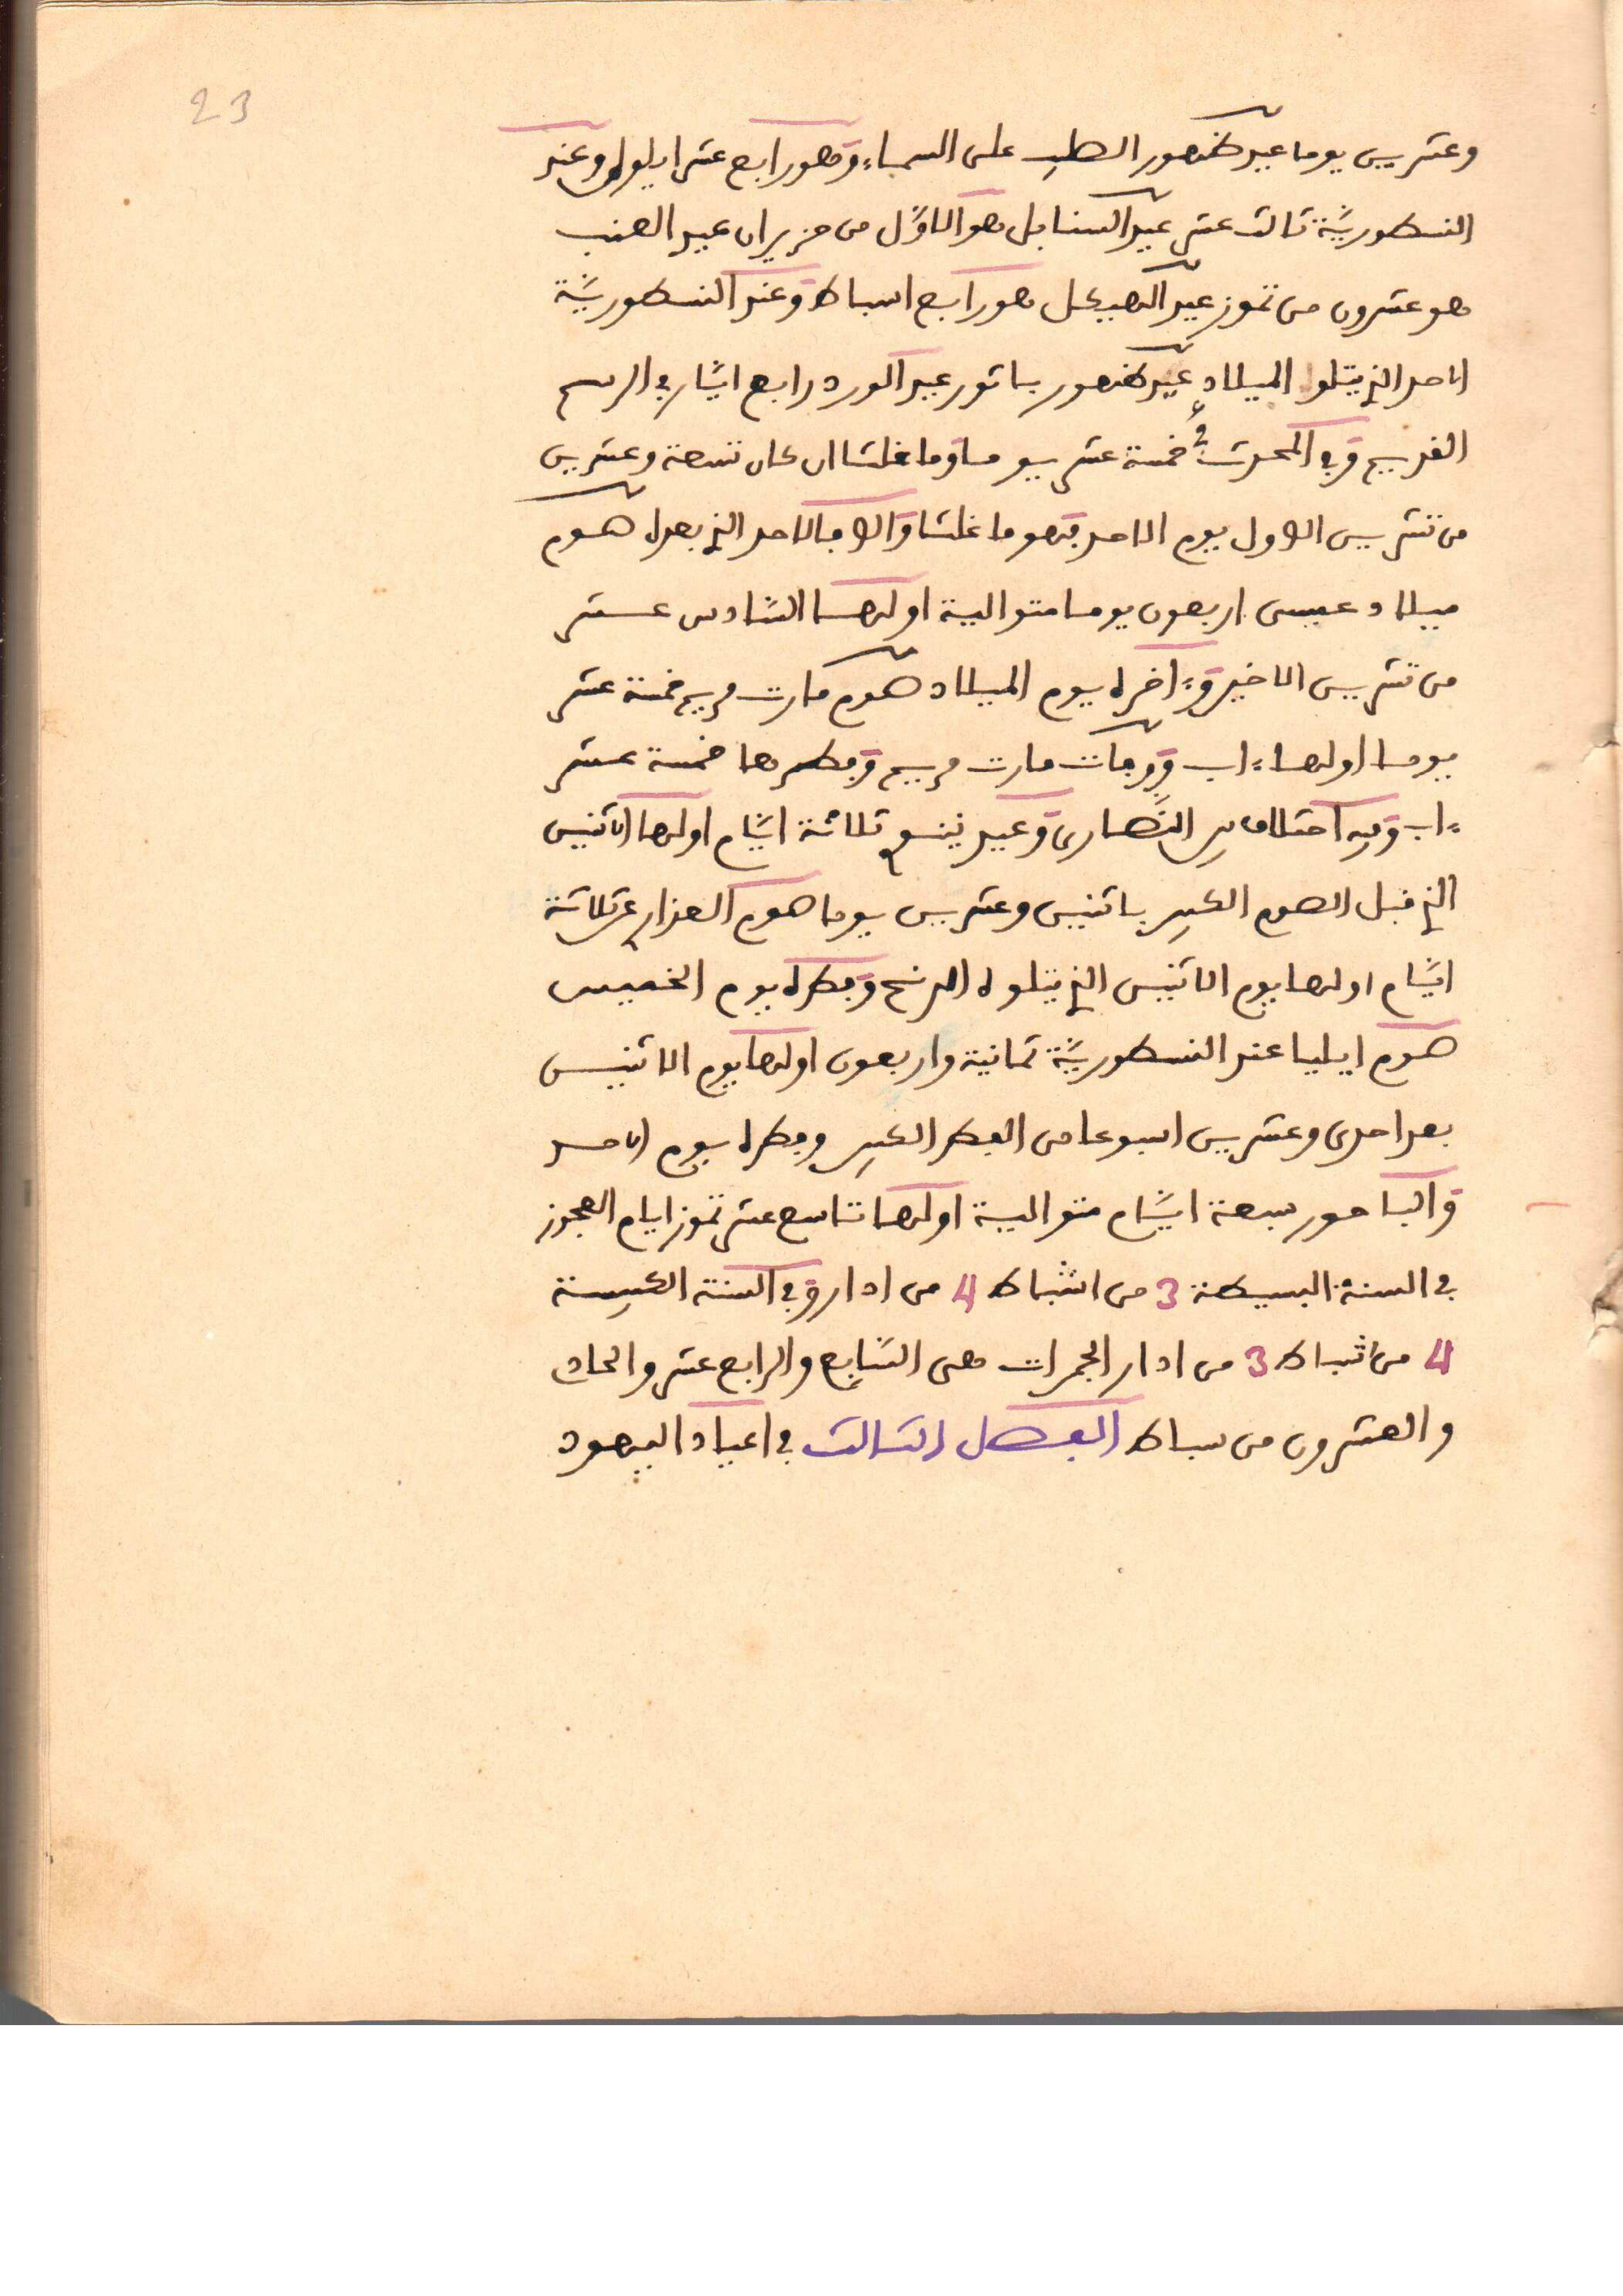 23
وعشرين يوما عيد ظهور الصليب على السماء وهو رابع عشر ايلول وعند
النسطوريّة ثالث عشر عيد السنابل هو الاوّل من حزيران عيد العنب
هو عشرون من تموز عيد الهيكل هو رابع اسباط وعند النسطوريّة
الاحد الذي يتلوا الميلاد عيد ظهور باتور عيد الورد رابع ايّار في الرسم
القديم وفي المحدث في خمسة عشر يوما وما غلثا ان كان تسعة وعشرين
من تشرين الاول يوم الاحد فهو ما غلثا والا فالاحد الذي بعدا صوم
ميلاد عيسى اربعون يوما متوالية اولها السّادس عشر
من تشرين الاخير وءاخره يوم الميلاد صوم مارت مريم خمسة عشر
يوما اولها ءاب ووفات مارت مريم وفطرها خمسة عشر
ءاب وفيه اختلاف بين النّصارى وعيد نينوى ثلاثة ايّام اولها الاثنين
الذي قبل الصوم الكبير باثنين وعشرين يوما صوم العذارى ثلاثة
ايّام اولها يوم الاثنين الذي يتلوه الدنح وفطره يوم الخميس
صوم ايليا عند النسطوريّة ثمانية واربعون اولها يوم الاثنين
بعد احدى وعشرين اسبوعا من الفطر الكبير وفطره يوم الاحد
والباحور سبعة ايّام متوالية اولها تاسع عشر تموز ايام العجوز
في السنة البسيطة 3 من اشباط 4 من ادار وفي السنة الكبيسة
4 من اشباط 3 من ادار الجمرات هى السّابع والرابع عشر والحادي
والعشرون من سباط الفصل الثالث في اعياد اليهود